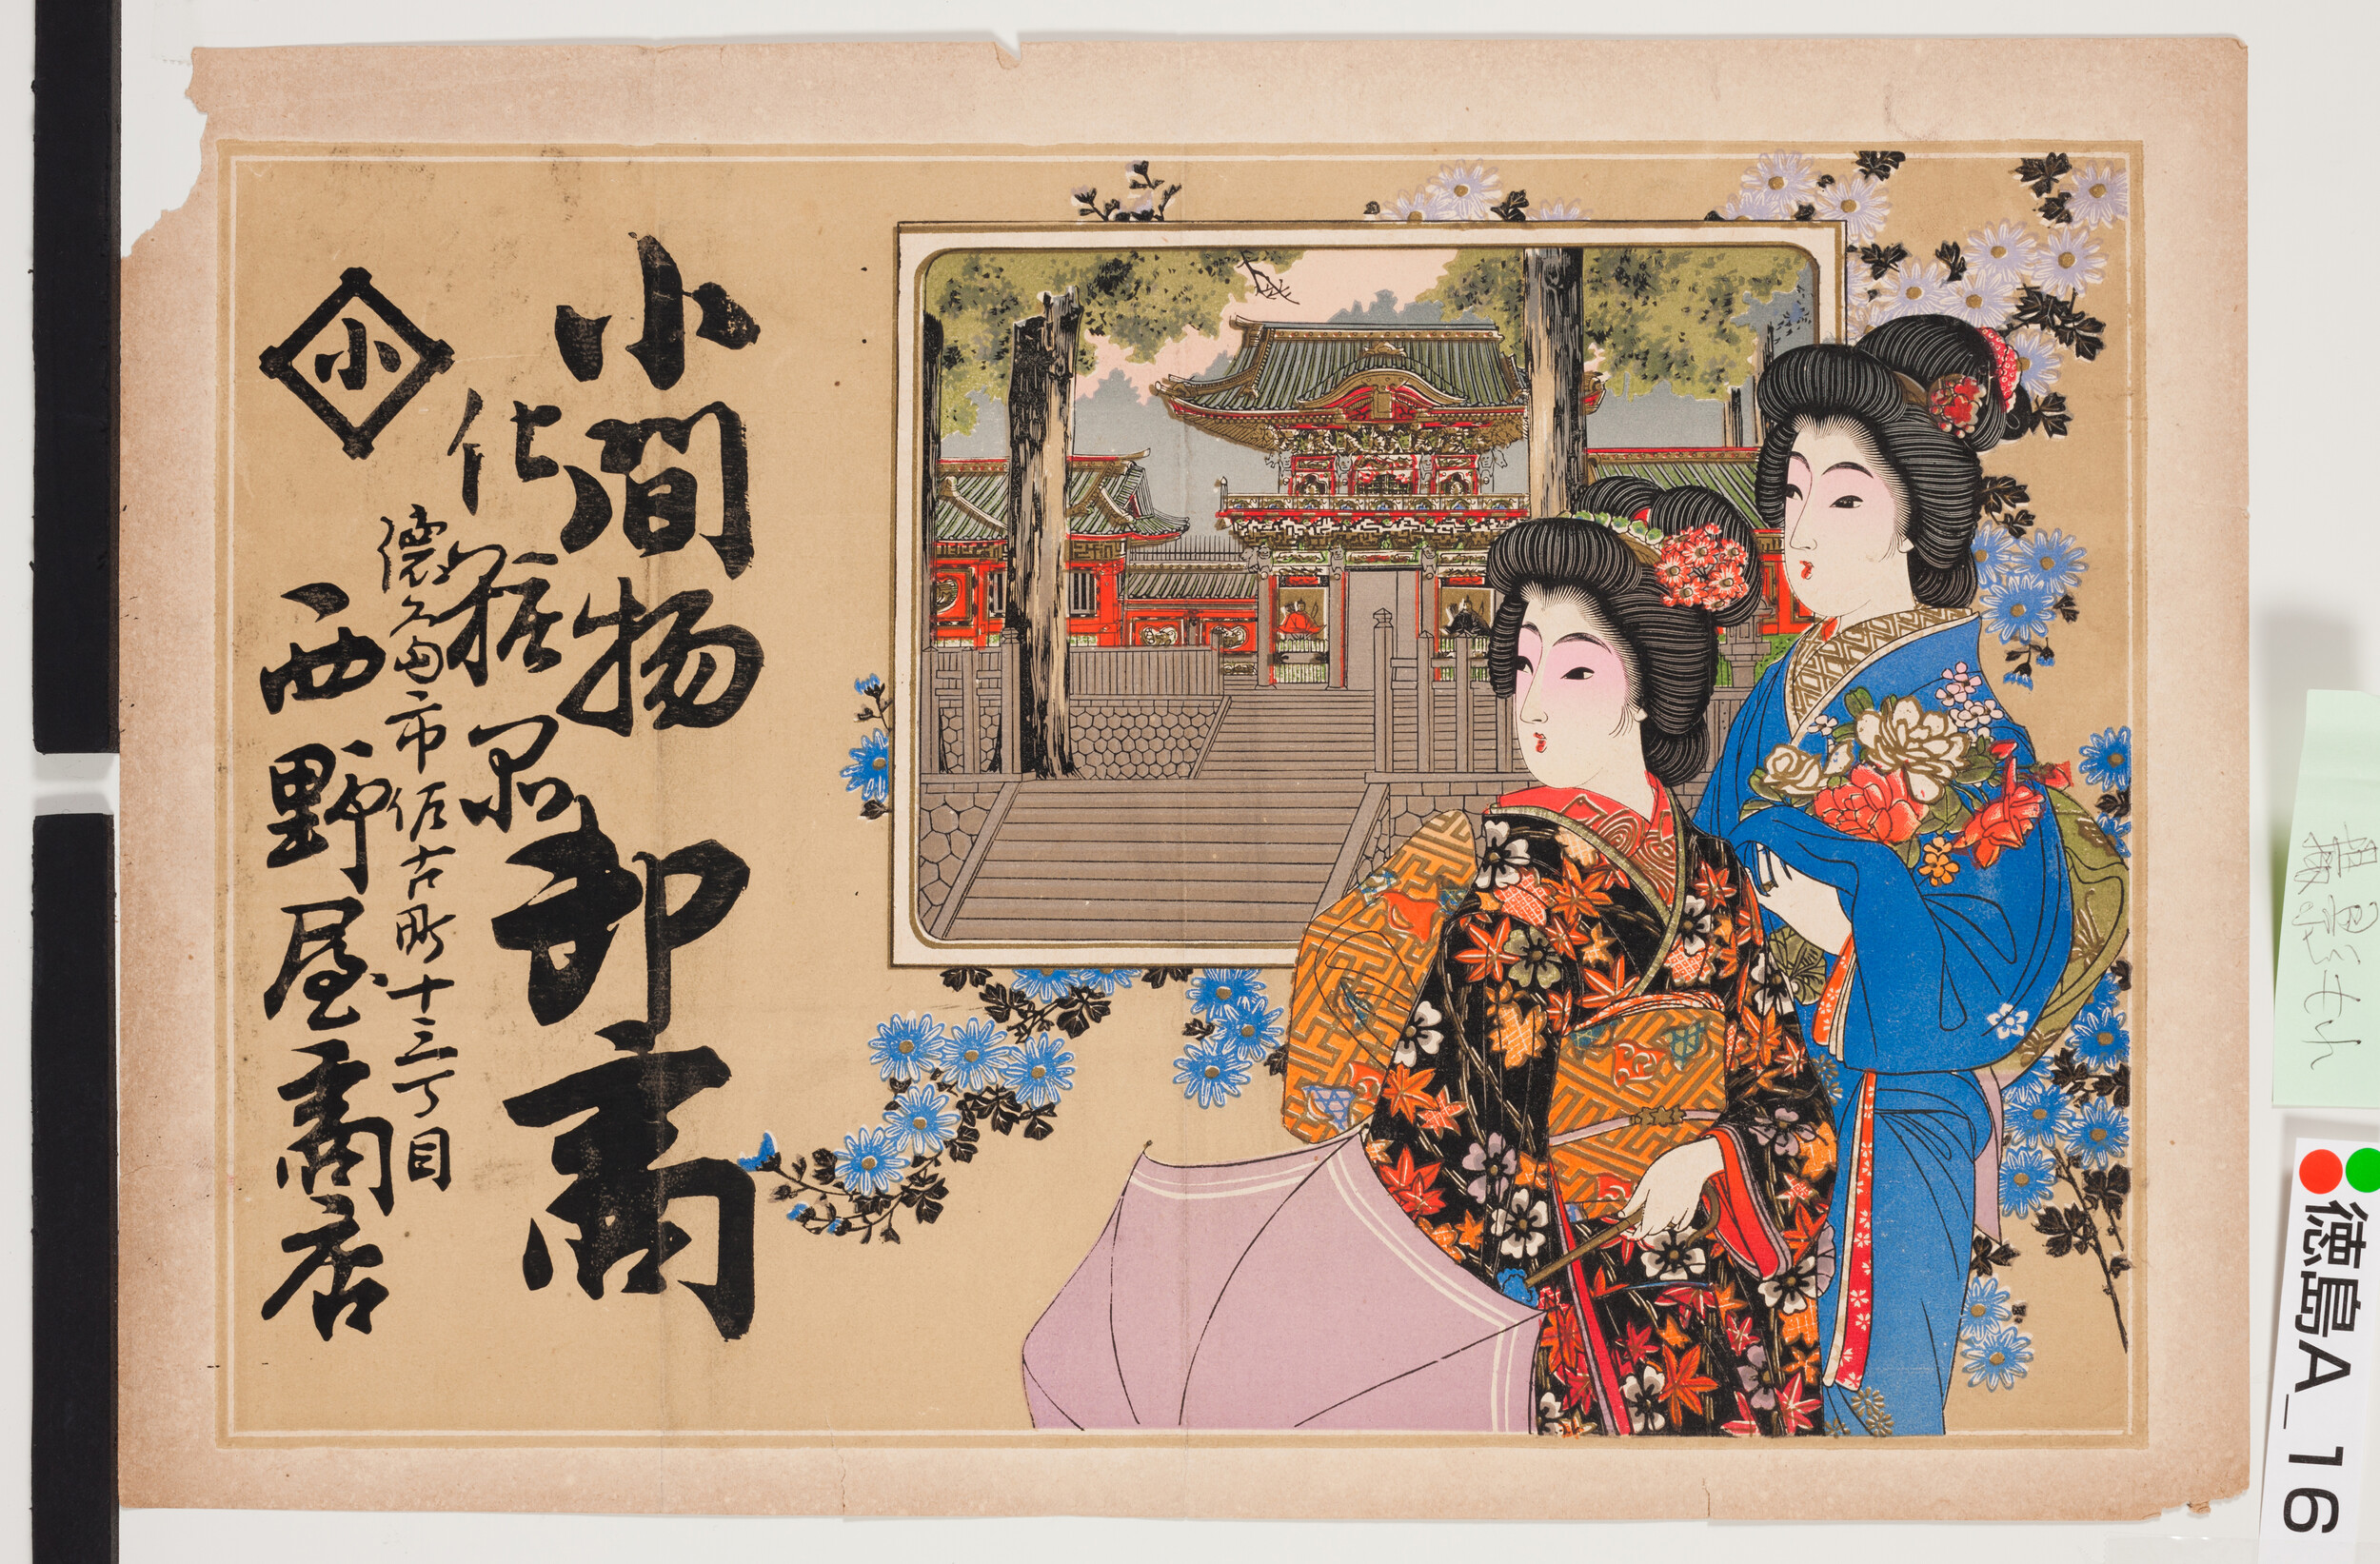 小間物
化粧品
卸商
徳島市佐古町十三丁目
小
西野屋商店
徳島A_16